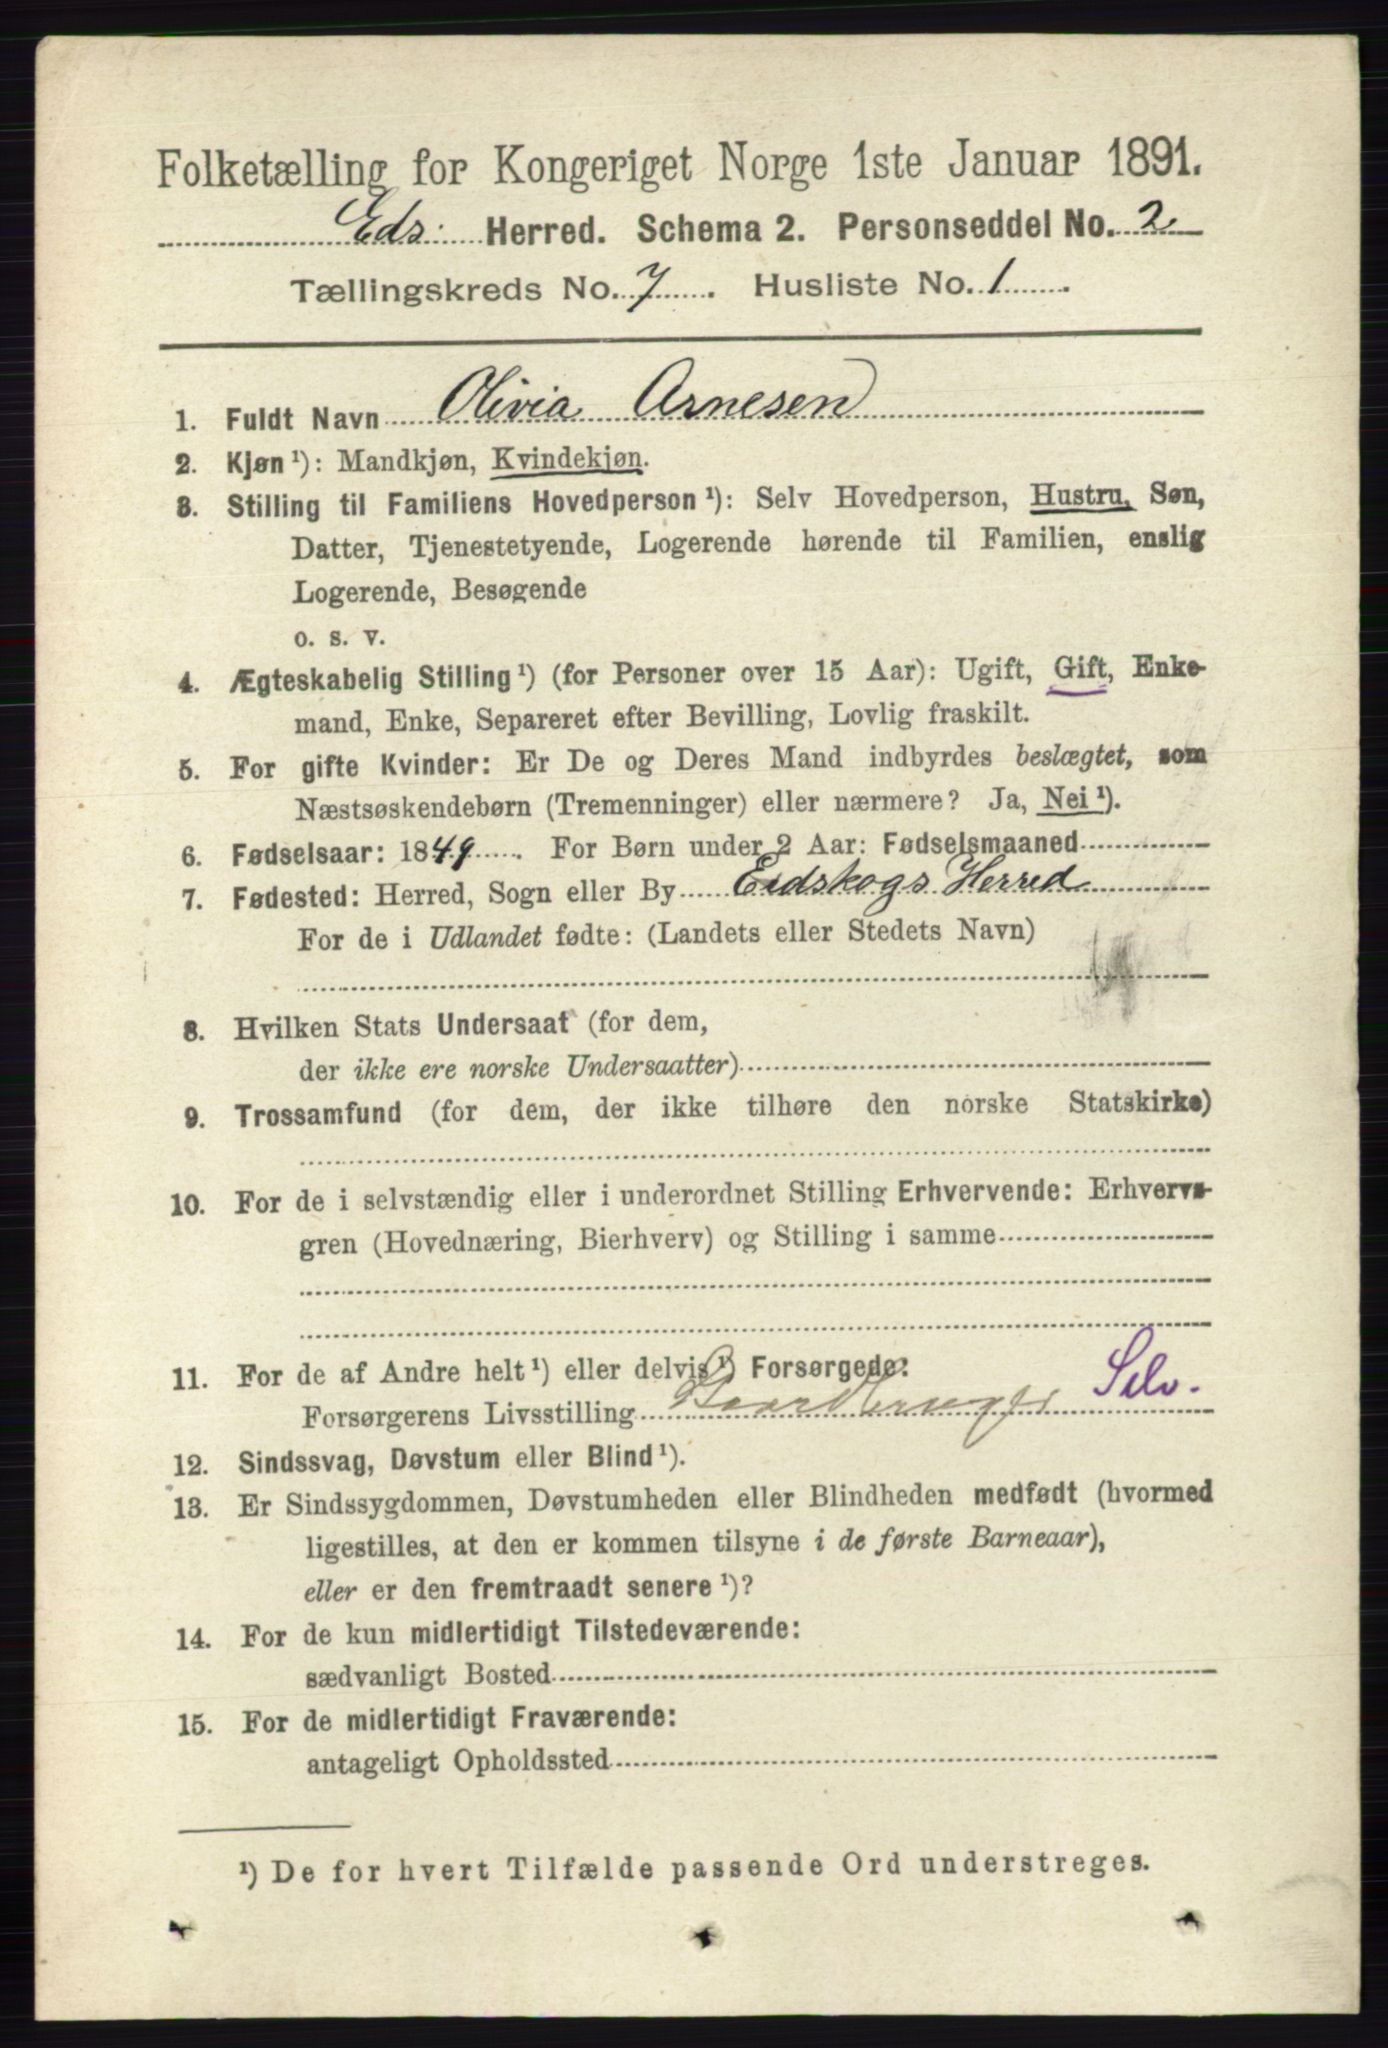 Folketælling for Kongeriget Norge 1ste Januar 1891.
Eds Herred. Schema 2. Personseddel No. 2
Tællingskreds No. 7. Husliste No. 1.
1. Fuldt Navn Olivia Arnesen
2. Kjøn¹): Mandkjøn, Kvindekjøn.
3. Stilling til Familiens Hovedperson¹): Selv Hovedperson, Hustru, Søn,
Datter, Tjenestetyende, Logerende hørende til Familien, enslig
Logerende, Besøgende
o. s. v.
4. Ægteskabelig Stilling¹) (for Personer over 15 Aar): Ugift, Gift, Enke-
mand, Enke, Separeret efter Bevilling, Lovlig fraskilt.
5. For gifte Kvinder: Er De og Deres Mand indbyrdes beslægtet, som
Næstsøskendebørn (Tremenninger) eller nærmere? Ja, Nei¹).
6. Fødselsaar: 1849. For Børn under 2 Aar: Fødselsmaaned
7. Fødested: Herred, Sogn eller By Eidskogs Herred
For de i Udlandet fødte: (Landets eller Stedets Navn)
8. Hvilken Stats Undersaat (for dem,
der ikke ere norske Undersaatter)
9. Trossamfund (for dem, der ikke tilhøre den norske Statskirke)
10. For de i selvstændig eller i underordnet Stilling Erhvervende: Erhvervs-
gren (Hovednæring, Bierhverv) og Stilling i samme
11. For de af Andre helt¹) eller delvis¹) Forsørgede:
Forsørgerens Livsstilling Selv.
12. Sindssvag, Døvstum eller Blind¹).
13. Er Sindssygdommen, Døvstumheden eller Blindheden medfødt (hvormed
ligestilles, at den er kommen tilsyne i de første Barneaar),
eller er den fremtraadt senere¹)?
14. For de kun midlertidigt Tilstedeværende:
sædvanligt Bosted
15. For de midlertidigt Fraværende:
antageligt Opholdssted
¹) De for hvert Tilfælde passende Ord understreges.